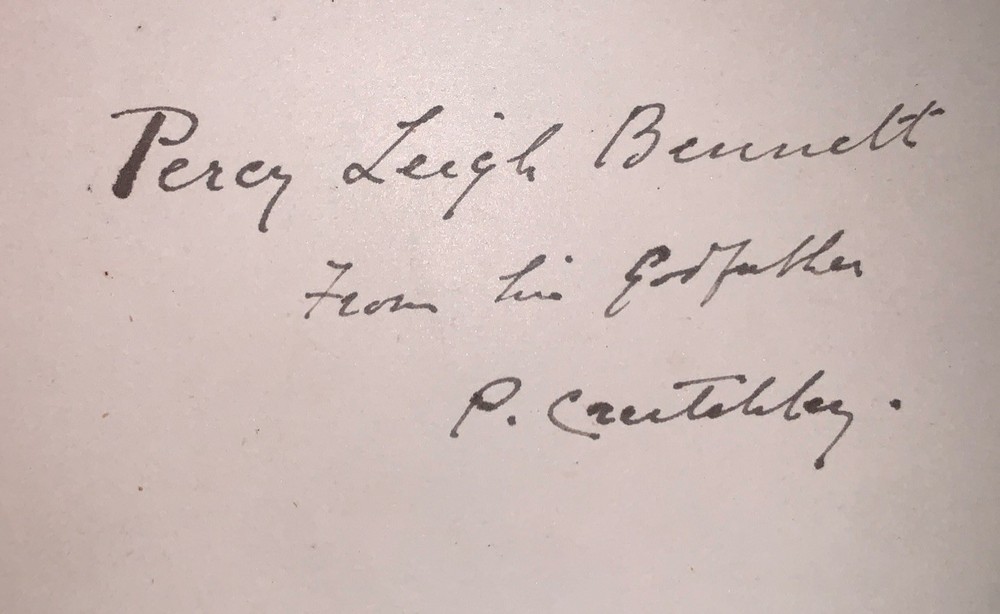 Percy Leigh Bennett
From his Godfather
P. Crutchley.